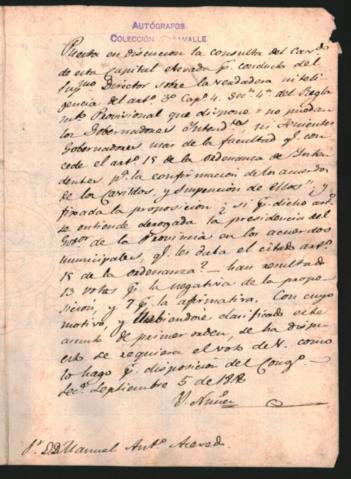 AUTÓGRAFOS
COLECCIÓN
Puesta en discucion la consulta del Cav.do
de esta Capital elevada p.r conducto del
Sup.mo Director sobre la verdadera inteli-
gencia del art.o 3.o Cap.o 4. Sec.n 4.a del Regla
m.to Provisional que dispone no puedan
los Gobernadores Intend.tes ni Tenientes
Gobernadores usar de la facultad q.e con-
cede el art.o 15 de la ordenanza de Inten
dentes p.a la confirmacion de los acuerdos
de los Cavildos y suspencion de ellos; y
fixada la proposicion ¿ si p.r dicho art.o
se entiende derogada la presidencia del
Gov.or de la Provincia en los acuerdos
municipales, q.e les daba el citado art.o
15 de la ordenanza? — han resultado
13 votos p.r la negativa de la propo-
sicion, y 7 p.r la afirmativa. Con cuyo
motivo, y habiendose clasificado este
asunto de primer orden, se ha dispu-
esto se requiera el voto de V. como
lo hago p.r disposicion del Cong.o —
Sec.a Septiembre 5 de 1818
V. Nuñez
S.r D.D. Manuel Ant.o Acevedo